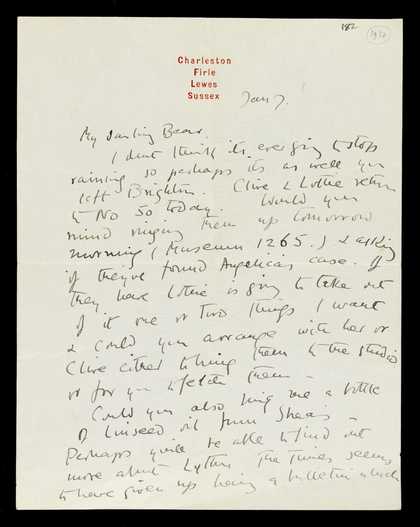 182
Charleston
Firle
Lewes
Sussex
Jan 7.
My darling Bear.
I dont think its ever going to stop
raining so perhaps its as well you
left Brighton. Clive & Lottie return
to No 50 today. Would you
mind ringing them up tomorrow
morning (Museum 1265.) & asking
if theyve found Angelicas case. If
they have Lottie is going to take out
of it one or two things I want
& could you arrange with her or
Clive either to bring them to the studio
or for you to fetch them –
Could you also bring me a bottle
of linseed oil from
Perhaps you'll be able to find out
more about Lytton. The Times seems
to have given up having a bulletin which